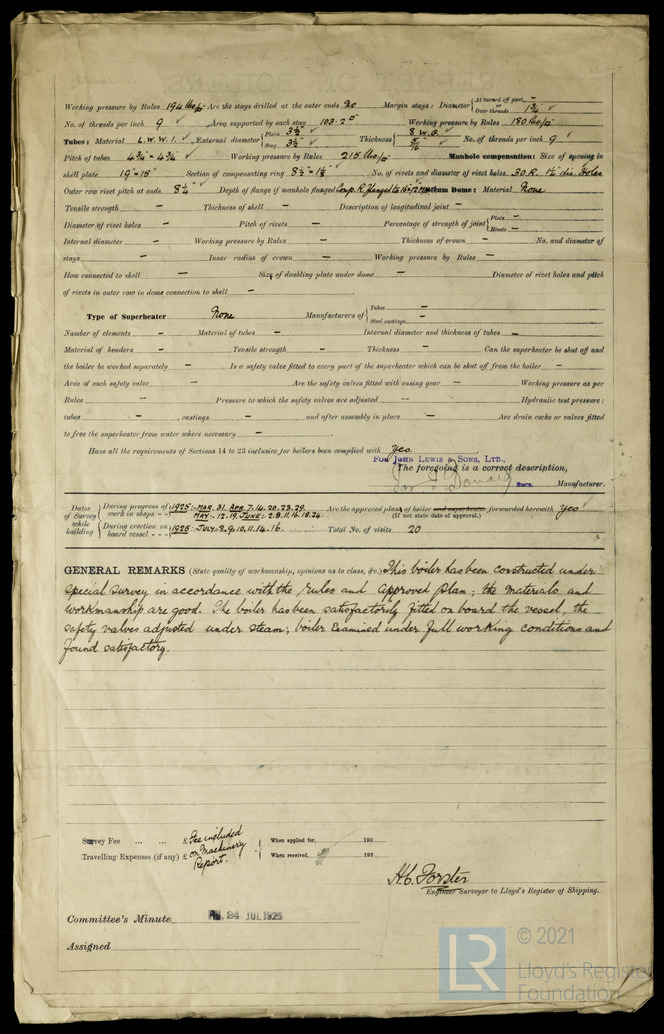 Working pressure by Rules 194 lbs/□" Are the stays drilled at the outer ends No Margin stays: Diameter { At turned off part, — Over threads 1¾" ✓
No. of threads per inch 9 ✓ Area supported by each stay 103.2 □" Working pressure by Rules 180 lbs/□"
Tubes: Material L.W.W.I. ✓ External diameter { Plain 3½" ✓ Stay 3½" ✓ Thickness { 8 W.G. ✓ 5/16 ✓ No. of threads per inch 9 ✓
Pitch of tubes 4¾" × 4¾" ✓ Working pressure by Rules 215 lbs/□" Manhole compensation: Size of opening in
shell plate 19" × 15" Section of compensating ring 8½" × 1½" No. of rivets and diameter of rivet holes 30.R. 1½" dia. Holes
Outer row rivet pitch at ends 8¼" Depth of flange if manhole flanged Comp. R. Flanged to Steam Dome: Material None
Tensile strength — Thickness of shell — Description of longitudinal joint —
Diameter of rivet holes — Pitch of rivets — Percentage of strength of joint { Plate — Rivets —
Internal diameter — Working pressure by Rules — Thickness of crown — No. and diameter of
stays — Inner radius of crown — Working pressure by Rules —
How connected to shell — Size of doubling plate under dome — Diameter of rivet holes and pitch
of rivets in outer row in dome connection to shell —
Type of Superheater None Manufacturers of { Tubes — Steel castings —
Number of elements — Material of tubes — Internal diameter and thickness of tubes —
Material of headers — Tensile strength — Thickness — Can the superheater be shut off and
the boiler be worked separately — Is a safety valve fitted to every part of the superheater which can be shut off from the boiler —
Area of each safety valve — Are the safety valves fitted with easing gear — Working pressure as per
Rules — Pressure to which the safety valves are adjusted — Hydraulic test pressure:
tubes — , castings — and after assembly in place — Are drain cocks or valves fitted
to free the superheater from water where necessary —
Have all the requirements of Sections 14 to 23 inclusive for boilers been complied with Yes.
FOR JOHN LEWIS & SONS, LTD.,
The foregoing is a correct description,
Manufacturer.
Dates of Survey while building { During progress of work in shops - - } 1925:- MAR. 31. APR. 7. 14. 20. 23. 29. MAY:- 12. 19. JUNE:- 2. 8. 11. 16. 18. 24. Are the approved plans of boiler and superheater forwarded herewith Yes ✓
(If not state date of approval.)
{ During erection on board vessel - - - } 1925:- JULY:- 8. 9. 10. 11. 14. 16. Total No. of visits 20
GENERAL REMARKS (State quality of workmanship, opinions as to class, &c.) This boiler has been constructed under
special survey in accordance with the rules and approved plan; the materials and
workmanship are good. The boiler has been satisfactorily fitted on board the vessel, the
safety valves adjusted under steam; boiler examined under full working conditions and
found satisfactory.
Survey Fee ... ... £ Fee included When applied for, 192
Travelling Expenses (if any) £ on Machinery Report. When received, 192
H.C. Forster
Engineer Surveyor to Lloyd's Register of Shipping.
Committee's Minute FRI. 24 JUL 1925
Assigned
LR © 2021
Lloyd's Register
Foundation